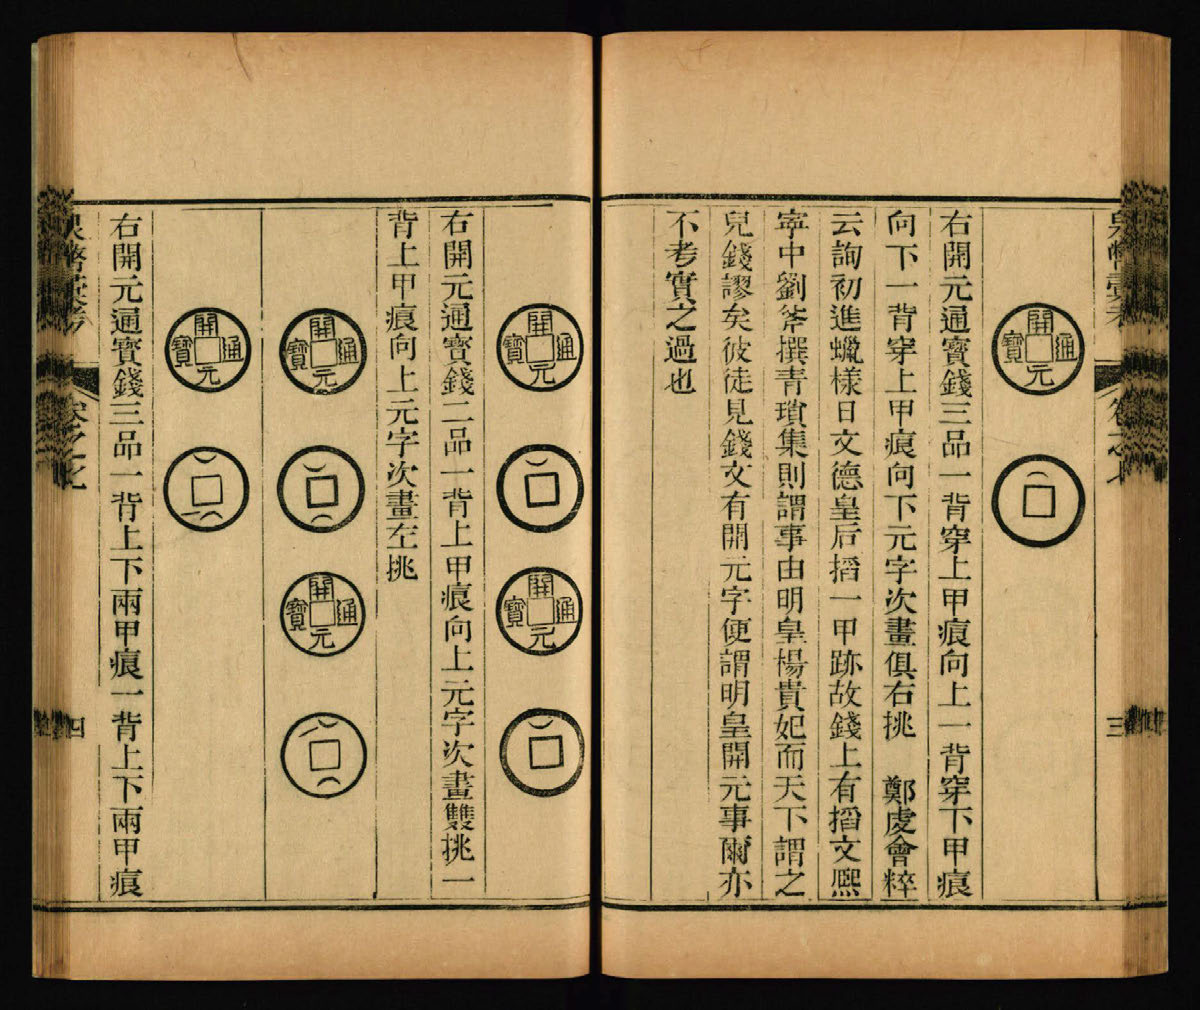 泉幣彙考 卷之七 三
開元通寶
右開元通寶錢三品一背穿上甲痕向上一背穿下甲痕
向下一背穿上甲痕向下元字次畫俱右挑　鄭虔會粹
云詢初進蠟樣日文德皇后搯一甲跡故錢上有搯文熙
寧中劉斧撰青瑣集則謂事由明皇楊貴妃而天下謂之
兒錢謬矣彼徒見錢文有開元字便謂明皇開元事爾亦
不考實之過也
開元通寶
開元通寶
右開元通寶錢二品一背上甲痕向上元字次畫雙挑一
背上甲痕向上元字次畫左挑
開元通寶
開元通寶
開元通寶
右開元通寶錢三品一背上下兩甲痕一背上下兩甲痕
泉幣彙考 卷之七 四